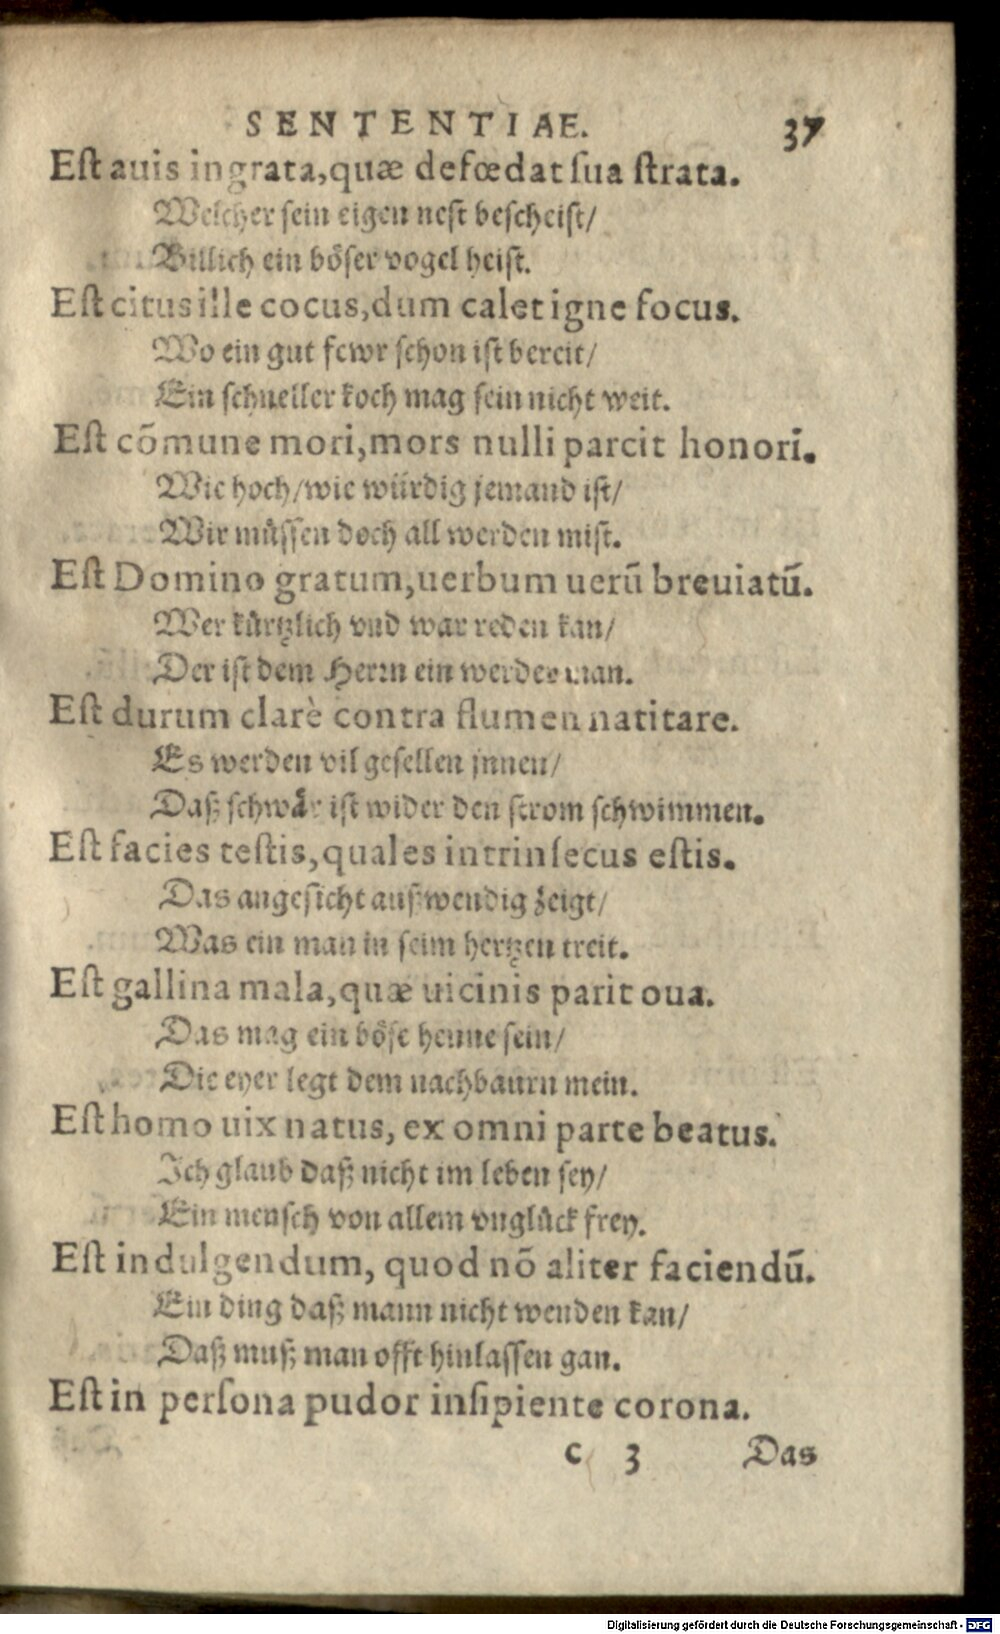 SENTENTIAE. 37
Est auis ingrata, quæ defœdat sua strata.
Welcher sein eigen nest bescheist/
Billich ein böser vogel heist.
Est citus ille cocus, dum calet igne focus.
Wo ein gut fewr schon ist bereit/
Ein schneller koch mag sein nicht weit.
Est cõmune mori, mors nulli parcit honori.
Wie hoch/wie würdig jemand ist/
Wir müssen doch all werden mist.
Est Domino gratum, uerbum uerũ breuiatũ.
Wer kürtzlich vnd war reden kan/
Der ist dem Herrn ein werder man.
Est durum clarè contra flumen natitare.
Es werden vil gesellen jnnen/
Daß schwär ist wider den strom schwimmen.
Est facies testis, quales intrinsecus estis.
Das angesicht außwendig zeigt/
Was ein man in seim hertzen treit.
Est gallina mala, quæ uicinis parit oua.
Das mag ein böse henne sein/
Die eyer legt dem nachbaurn mein.
Est homo uix natus, ex omni parte beatus.
Ich glaub daß nicht im leben sey/
Ein mensch von allem vnglück frey.
Est indulgendum, quod nõ aliter faciendũ.
Ein ding daß mann nicht wenden kan/
Daß muß man offt hinlassen gan.
Est in persona pudor insipiente corona.
c 3 Das
Digitalisierung gefördert durch die Deutsche Forschungsgemeinschaft - DFG